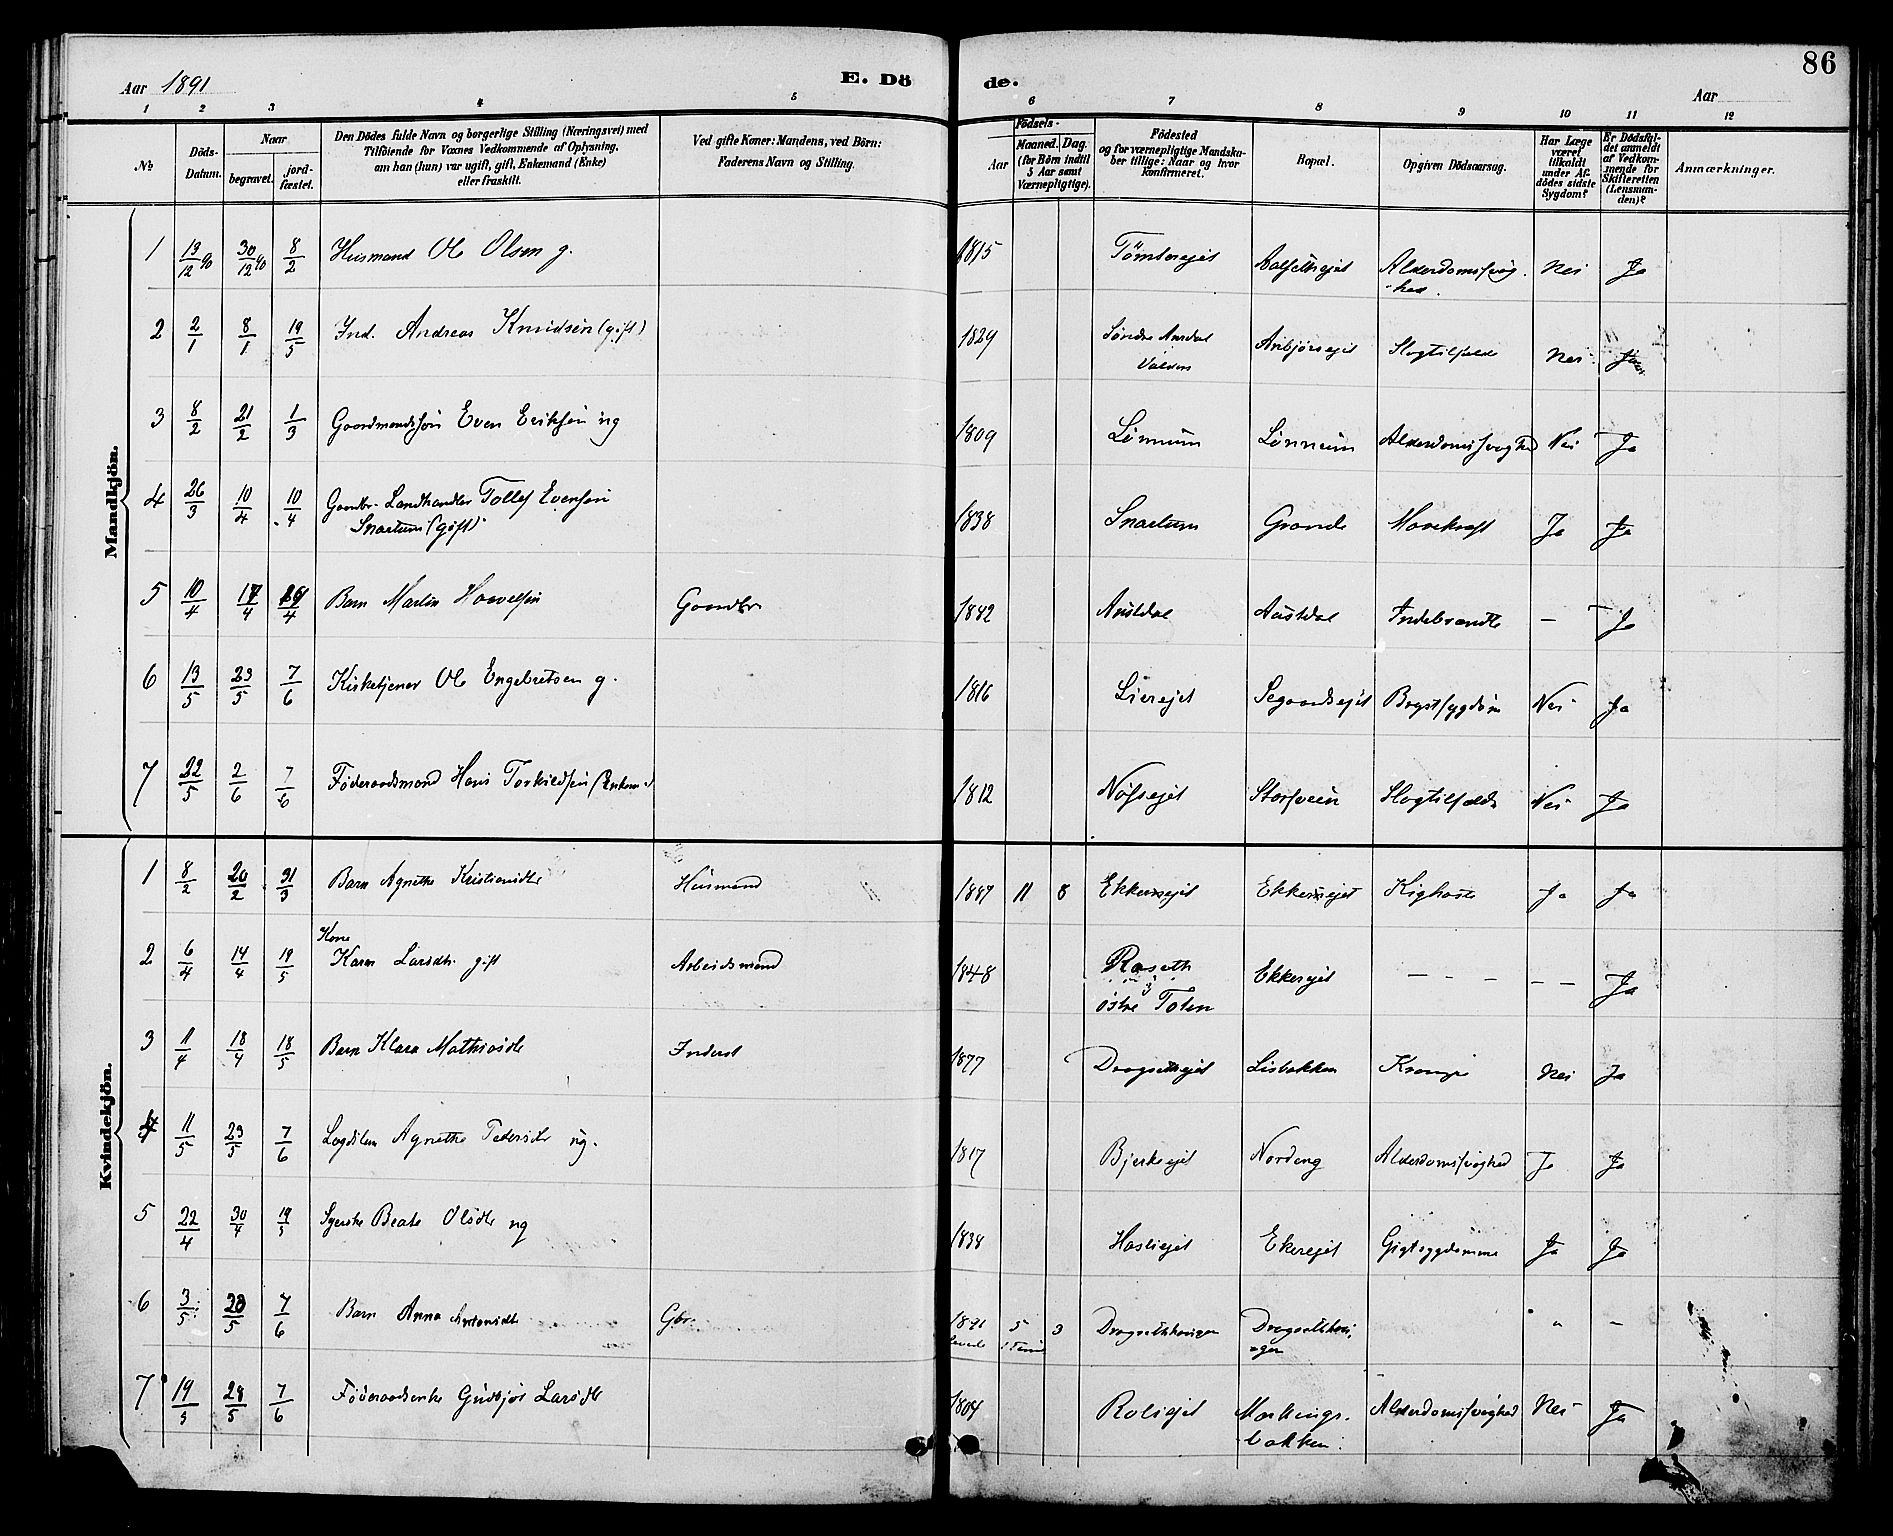 86
Aar 1891
E. Dö
de.
Aar
1 2 3 4 5 6 7 8 9 10 11 12
No
Döds-Datum.
Naar
begravet.
jord-fæstet.
Den Dödes fulde Navn og borgerlige Stilling (Næringsvei) med
Tilföiende for Voxnes Vedkommende af Oplysning,
om han (hun) var ugift, gift, Enkemand (Enke)
eller fraskilt.
Ved gifte Koner: Mandens, ved Börn:
Faderens Navn og Stilling.
Födsels-
Aar
Maaned. Dag.
(for Börn indtil
5 Aar samt
Værnepligtige).
Födested
og for værnepligtige Mandska-
ber tillige: Naar og hvor
konfirmeret.
Bopæl.
Opgiven Dödsaarsag.
Har Læge
været
tilkaldt
under Af-
dödes sidste
Sygdom?
Er Dödsfal-
det anmeldt
af Vedkom-
mende for
Skifteretten
(Lensman-
den)?
Anmærkninger.
Mandkjön.
1 19/12 90 30/12 90 8/2 Husmand Ole Olsen g. 1815 Tömterejet Aalsethejet Alderdomssvag-
hed. Nei Ja
2 2/1 8/1 19/5 Ind. Andreas Knudsen (gift) 1829 Søndre Aurdal
Valders Slagtilfælde Nei
3 8/2 21/2 1/3 Gaardmandssøn Even Eriksen ug 1809 Lönnum Lönnum Alderdomssvaghed Nei Ja
4 26/3 10/4 10/4 Gaardbr. Landhandler Tollef Evensen
Snartum (gift) 1838 Snartum Grande Mavekræft Ja Ja
5 10/4 17/4 Barn Martin Haavelsen Gaardbr Austdal Austdal — Ja
6 13/5 23/5 7/6 Kirketjener Ole Engebretsen g. 1816 Lierejet Segaardsejet Brystsygdom Nei Ja
7 22/5 2/6 7/6 Föderaadsmand Hans Torkildsen (Enkem.) 1812 Storsveen Slagtilfælde Nei Ja
Kvindekjön.
1 8/2 20/2 31/3 Barn Agnethe Kristiansdtr Husmand 1887 11 8 Ekkernejet Ekkernejet Kighoste Ja Ja
2 6/4 14/4 19/5 Kone
Karen Larsdtr. gift Arbeidsmand 1848 Raseth
i
östre Toten Ekkerejet — — — — — Ja
3 11/4 18/4 18/5 Barn Klara Mathiasdtr Inderst 1877 Dragsethejet Lisbakken Krampe Nei Ja
4 11/5 23/5 7/6 Agnethe Pedersdtr ug. 1817 Bjerkeejet Nordeng Alderdomssvaghed Ja Ja
5 22/4 30/4 19/5 Syerske Beate Olsdtr ug 1838 Hasliejet Ekerejet Gigtsygdomme Ja Ja
6 3/5 28/5 7/6 Barn Anna Antonsdtr Gbr. 1891
levede 5
1 Time 3 Dragsethhaugen Dragsethhau-
gen " —
7 19/5 28/5 7/6 Föderaadsenke Gudbjør Larsdtr 1804 Roliejet
bakken. Alderdomssvaghed Nei Ja